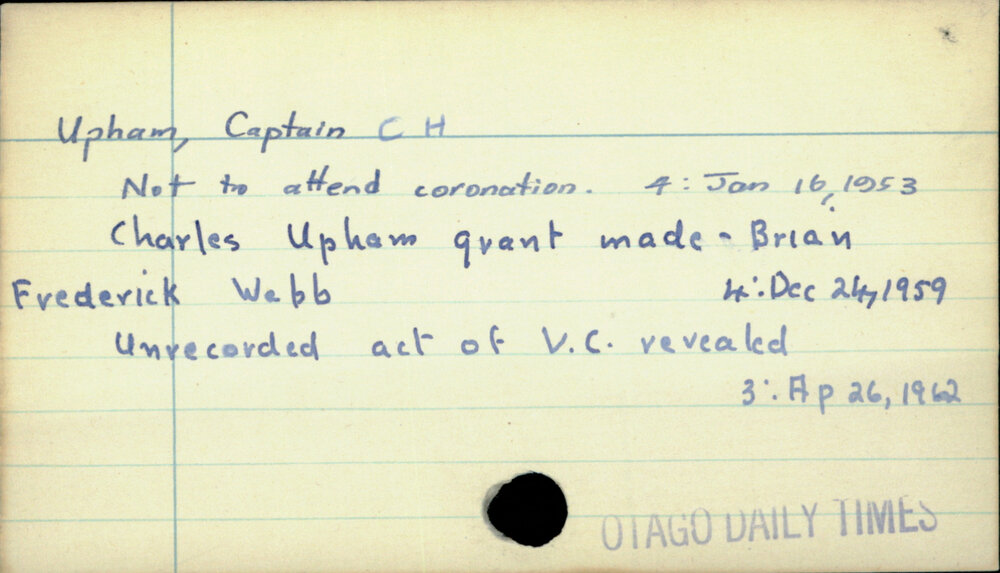 Upham, Captain C H
Not to attend coronation. 4: Jan 16, 1953
Charles Upham grant made - Brian
Frederick Webb 4: Dec 24, 1959
Unrecorded act of V.C. revealed
3: Ap 26, 1962
OTAGO DAILY TIMES